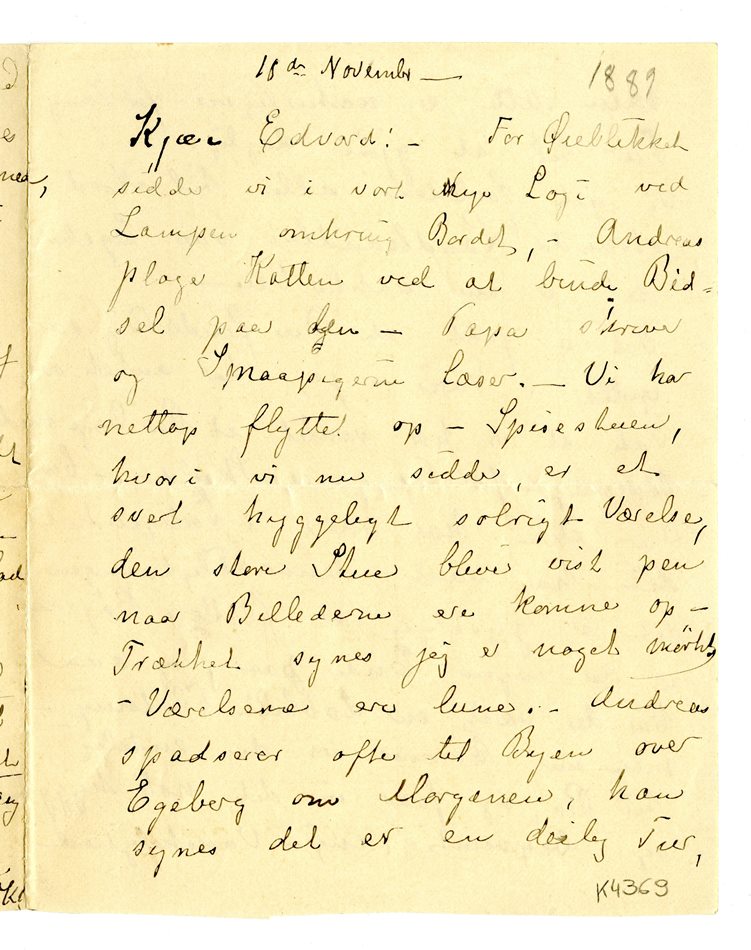 18de Novembr — 1889
Kjære Edvard! — For Øieblikket
sidde vi i vort Nye Logi ved
Lampen omkring Bordet, — Andreas
plage Katten ved at binde Bid=
sel paa den — Papa skriver
og Smaapigerne læser. — Vi har
nettop flyttet op — Spisestuen,
hvori vi nu sidde, er et
svert hyggeligt solrigt Værelse,
den store Stue bliver vist pen
naar Billederne ere komne op —
Trækket synes jeg er noget mörkt,
— Værelserne ere lune. — Andreas
spadserer ofte til Byen over
Egeberg om Morgenen, han
synes det er en deilig Tur,
K4369